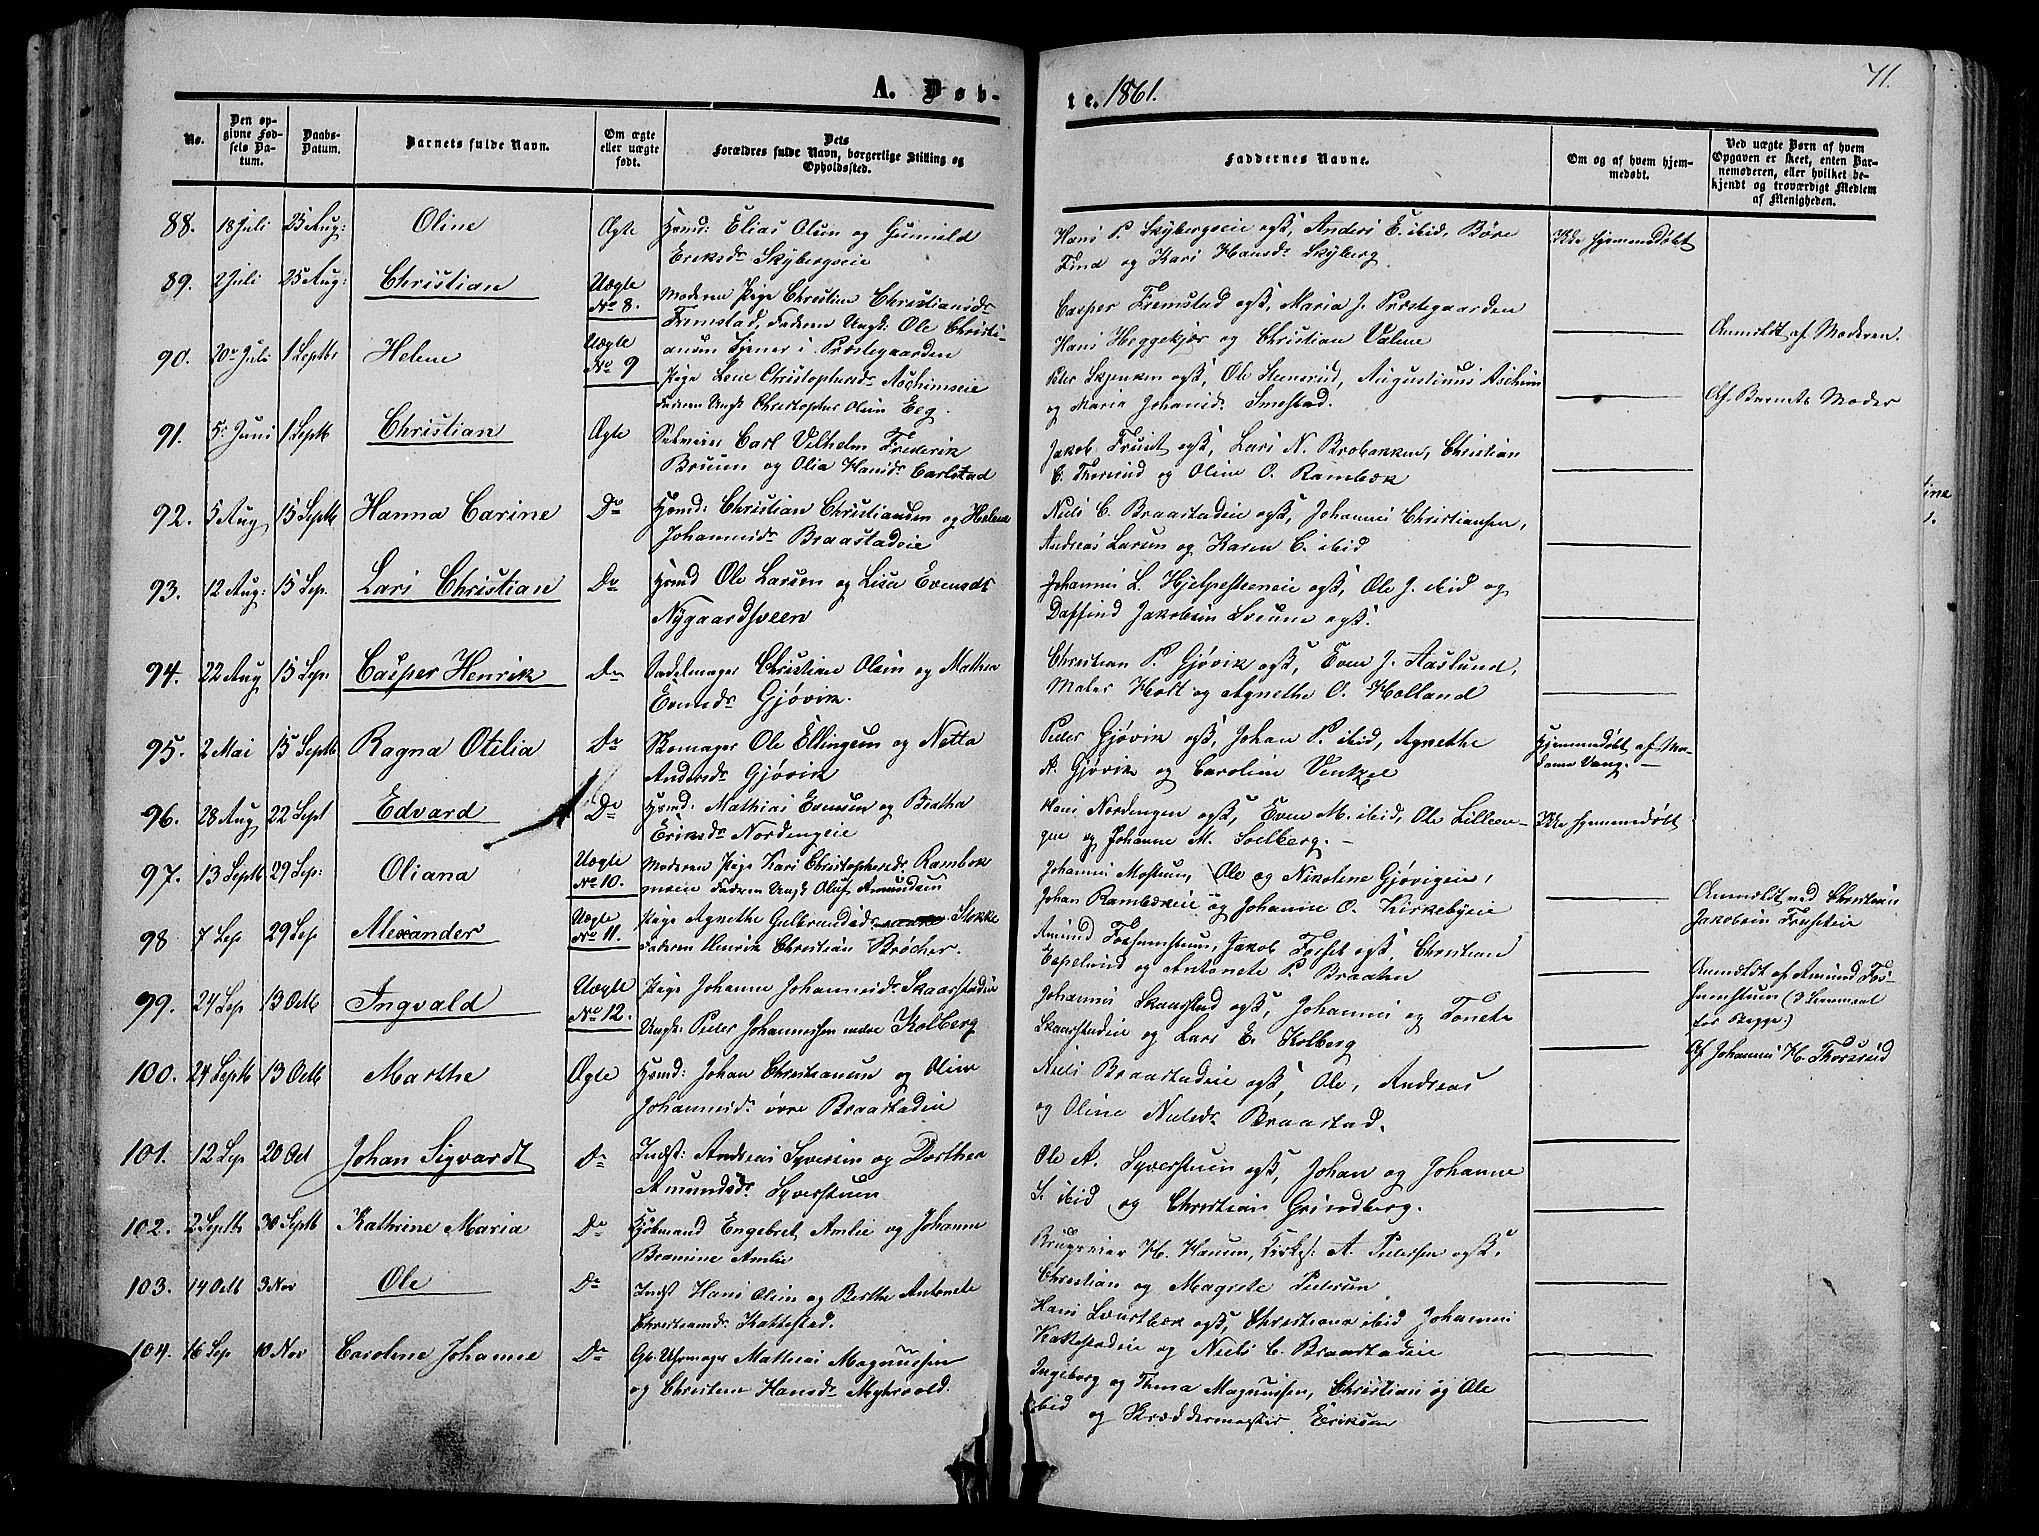 A. Døb-
te. 1861.
71.
No.
Den op-
givne Fød-
sels Da-
tum.
Daabs-
Datum.
Barnets fulde Navn.
Om ægte
eller uægte
født.
Dets
Forældres fulde Navn, borgerlige Stilling og
Opholdssted.
Faddernes Navne.
Om og af hvem hjem-
medøbt.
Ved uægte Børn af hvem
Opgaven er skeet, enten Bar-
nemoderen, eller hvilket be-
kjendt og troværdigt Medlem
af Menigheden.
88. 18 Juli 25 Aug: Oline Ægte Hmd: Elias Olsen og Gunild
Eriksdr Skybergseie
Hans P. Skybergseie ogs, Anders E. ibid, Børe
Find og Kari Hansdr Skyberg
Ikke hjemmedøbt
89. 2 Juli 25 Aug: Christian Uægte
No 8.
Moderen Pige Christine Christiansdr
Fremstad, Faderen Ungk: Ole Christi-
ansen Tjener i Præstegaarden
Casper Fremstad ogs, Maria J. Præstegaarden
Hans Heggekjær og Christian Valene
Anmeldt af Moderen.
90. 20 Juli 1 Septbr Helene Uægte
No 9
Pige Lene Christophersdr Aschimseie
Faderen Ungk Christopher Olsen Eeg.
Peter Skjenken ogs, Ole Steensrud, Augustinus Aschim
og Maria Johansdr Smestad.
Af Barnets Moder
91. 5 Juni 1 Septb Christian Ægte
Selveier Carl Vilhelm Frederik
Bruun og Olia Hansdr Carlstad
Jakob Fruit ogs, Lars N. Brobakken, Christian
C. Thorsrud og Oline O. Rambæk
92. 5 Aug 15 Septb Hanna Carine Do
Hmd: Christian Christiansen og Helene
Johannesdr Braastadeie
Niels C. Braastadeie ogs, Johannes Christiansen,
Andreas Larsen og Karen C. ibid
93. 12 Aug: 15 Sep. Lars Christian Do
Hmd Ole Larsen og Lisa Evensdr
Nygaardsveen
Johannes L. Hjelpesteeneie ogs, Ole J. ibid og
Daffind Jakobsen ogs.
94. 22 Aug 15 Sep Casper Henrik Do
Sadelmager Christian Olsen og Mathea
Evensdr Gjøvik.
Christian P. Gjøvik ogs, Even J. Aaslund,
Maler Holt og Agnethe O. Holland
95. 2 Mai 15 Septb Ragna Otilia Do
Skomager Ole Ellingsen og Netta
Andersdr Gjøvik
Peder Gjøvik ogs, Johan P. ibid, Agnethe
A. Gjøvik og Caroline Venkel
Hjemmedøbt af Ma-
dame Vang.
96. 28 Aug 22 Sept Edvard Do
Hmd: Mathias Evensen og Beatha
Eriksdr Nordengeie
Hans Nordengen ogs, Even M. ibid, Ole Lilleen-
gen og Johanne M. Soelberg.
Ikke hjemmedøbt
97. 13 Septb 29 Sep: Oliana Uægte
No 10.
Moderen Pige Kari Christophersdr Rambæk
Faderen Ungk Oluf Amundsen
Johannes Mostuen, Ole og Nikoline Gjøvigeie,
Johan Rambækeie og Johanne O. Kirkebyeie
Anmeldt ved Christian
Jakobsen
98 7 Sep 29 Sep Alexander Uægte
No 11.
Pige Agnethe Gulbrandsdr Stokke
Faderen Henrik Christian Brøcher.
Amund Fossumstuen, Jakob Forset ogs, Christian
Espelund og Antonete P. Braaten
Anmeldt af Amund Fos-
sumstuen (3 Lemmerel
før Begge)
99. 24 Sep 13 Octb Ingvald Uægte
No 12.
Pige Johanne Johannesdr Skaarstadeie
Ungk: Peder Johannessen nedre Kolberg
Johannes Skaarstad ogs, Johannes og Tonete
Skaarstadeie og Lars E. Kolberg
Af Johannes H. Thorsrud
100. 24 Septb 13 Octb Marthe Ægte
Hmd: Johan Christiansen og Oline
Johannesdr øvre Braastadeie
Niels Braastadeie ogs, Ole, Andreas
og Oline Nielsdr Braastad.
101. 12 Sep 20 Oct Johan Sigvardt Do
Indst: Andreas Syversen og Dorthea
Amundsdr Syverstuen
Ole A. Syverstuen ogs, Johan og Johanne
S. ibid og Christian Grindberg.
102. 2 Septb 30 Septb Kathrine Maria Do
Kjøbmand Engebret Amlie og Johanne
Bramine Amlie
Brugseier H. Hansen, A. Pedersen ogs,
Christian og Magrete Pedersen
103. 14 Octb 3 Nov Ole Do
Indst Hans Olsen og Berthe Antonete
Christiansdr Kattestad.
Hans ogs, Christiana ibid Johannes
Kattestadeie og Niels C. Braastadeie
104. 16 Sep 10 Nov Caroline Johanne Do
Gb. Uhrmager Mathias Magnussen
og Christine Hansdr Myhrvold.
Ingeborg og Thina Magnussen, Christian og Ole
ibid og Skræddermester Eriksen